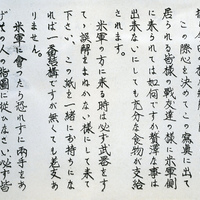 この際心を決めてこの
居られる皆様の戦友達の様に米軍側
に来られては如何ですか贅沢な事は
出来ませんでも充分な食物が支給
されます。
米軍の方に来る時は必ず武器をす
てゝ誤解をまぬかない様にして来て
下さい、この紙を一緒にお持ちにな
れば一番結構ですが無くても差支あ
りません。
米軍に會ったら恐れずに両手をあ
人の指図に従ひなさい必ず皆